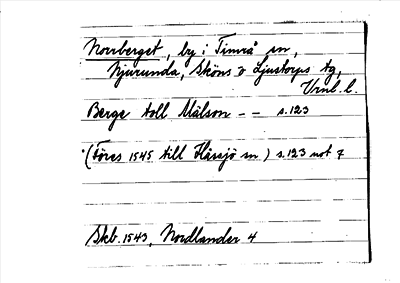 Norrberget, by i Timrå sn,
Njurunda, Sköns o Ljustorps tg,
Vrnl. l.
Berge toll Mälson - - s.123
(Föres 1545 till Hässjö sn) s.123 not 7
Skb. 1543, Nordlander 4